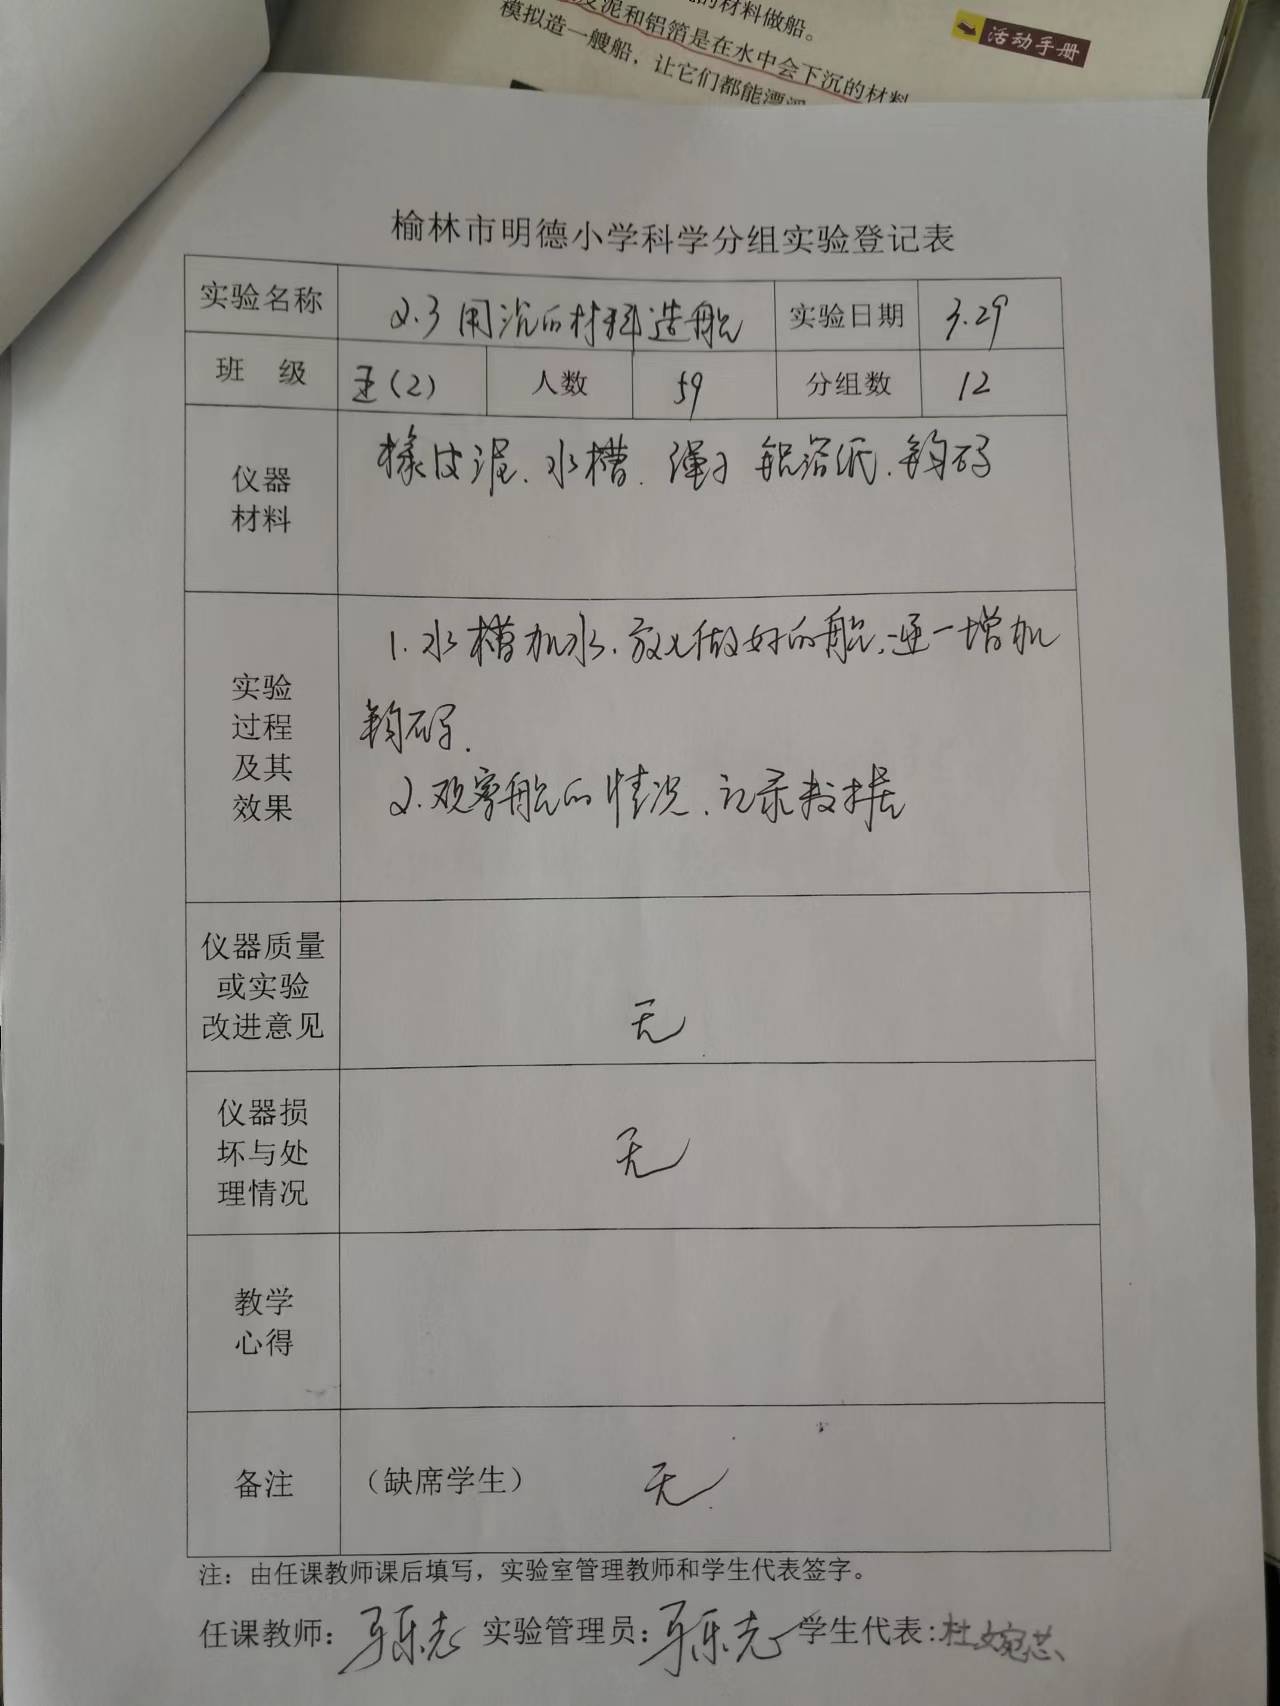 的材料做船。
皮泥和铝箔是在水中会下沉的材料
模拟造一艘船，让它们都能漂浮
活动手册
榆林市明德小学科学分组实验登记表
实验名称 2.3 用沉的材料造船 实验日期 3.29
班 级 五(2) 人数 59 分组数 12
仪器
材料
橡皮泥、水槽、绳子 铝箔纸、钩码
实验
过程
及其
效果
1.水槽加水、放入做好的船，逐一增加
钩码.
2.观察船的情况、记录数据
仪器质量
或实验
改进意见
无
仪器损
坏与处
理情况
无
教学
心得
备注 （缺席学生） 无
注：由任课教师课后填写，实验室管理教师和学生代表签字。
任课教师： 实验管理员： 学生代表:杜婉芯